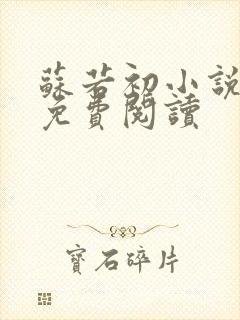 蘇若初小說
免費閱讀
寶石碎片